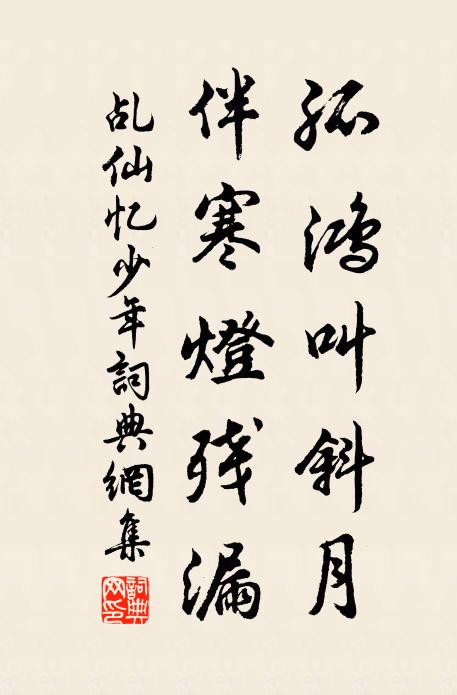 孤鴻叫斜月
伴寒燈残漏
乩仙忆少年詞典網集
詞典网印